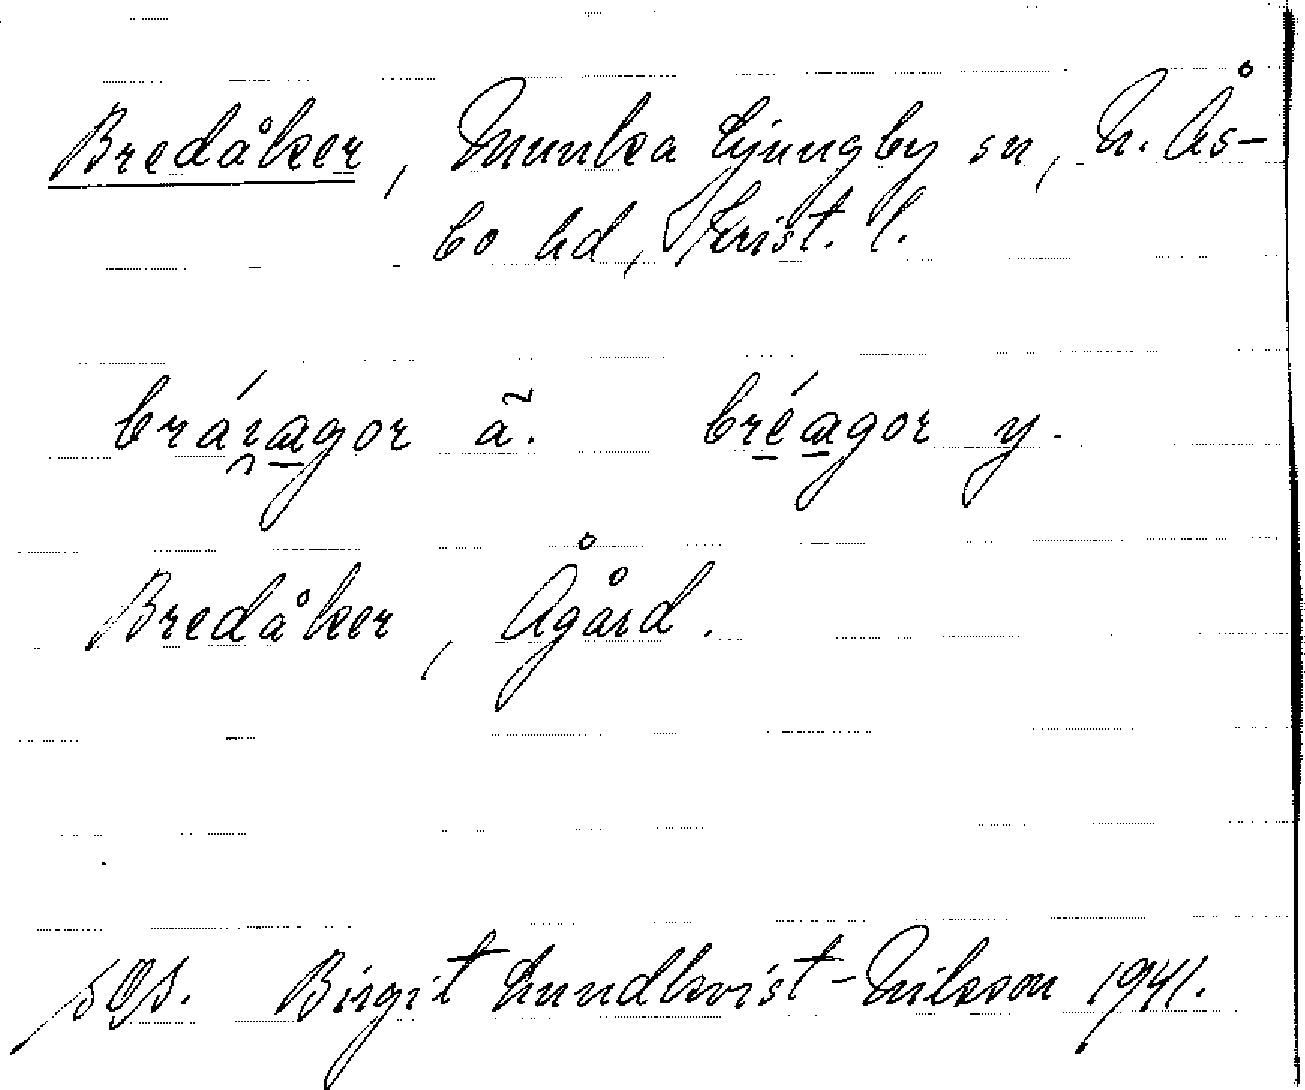 Bredåker, Munka Ljungby sn, N. Ås-
bo hd, Krist. l.
bráragor ä. bréagor y.
Bredåker, Ågård.
Birgit Lundkvist-Nilsson 1941.